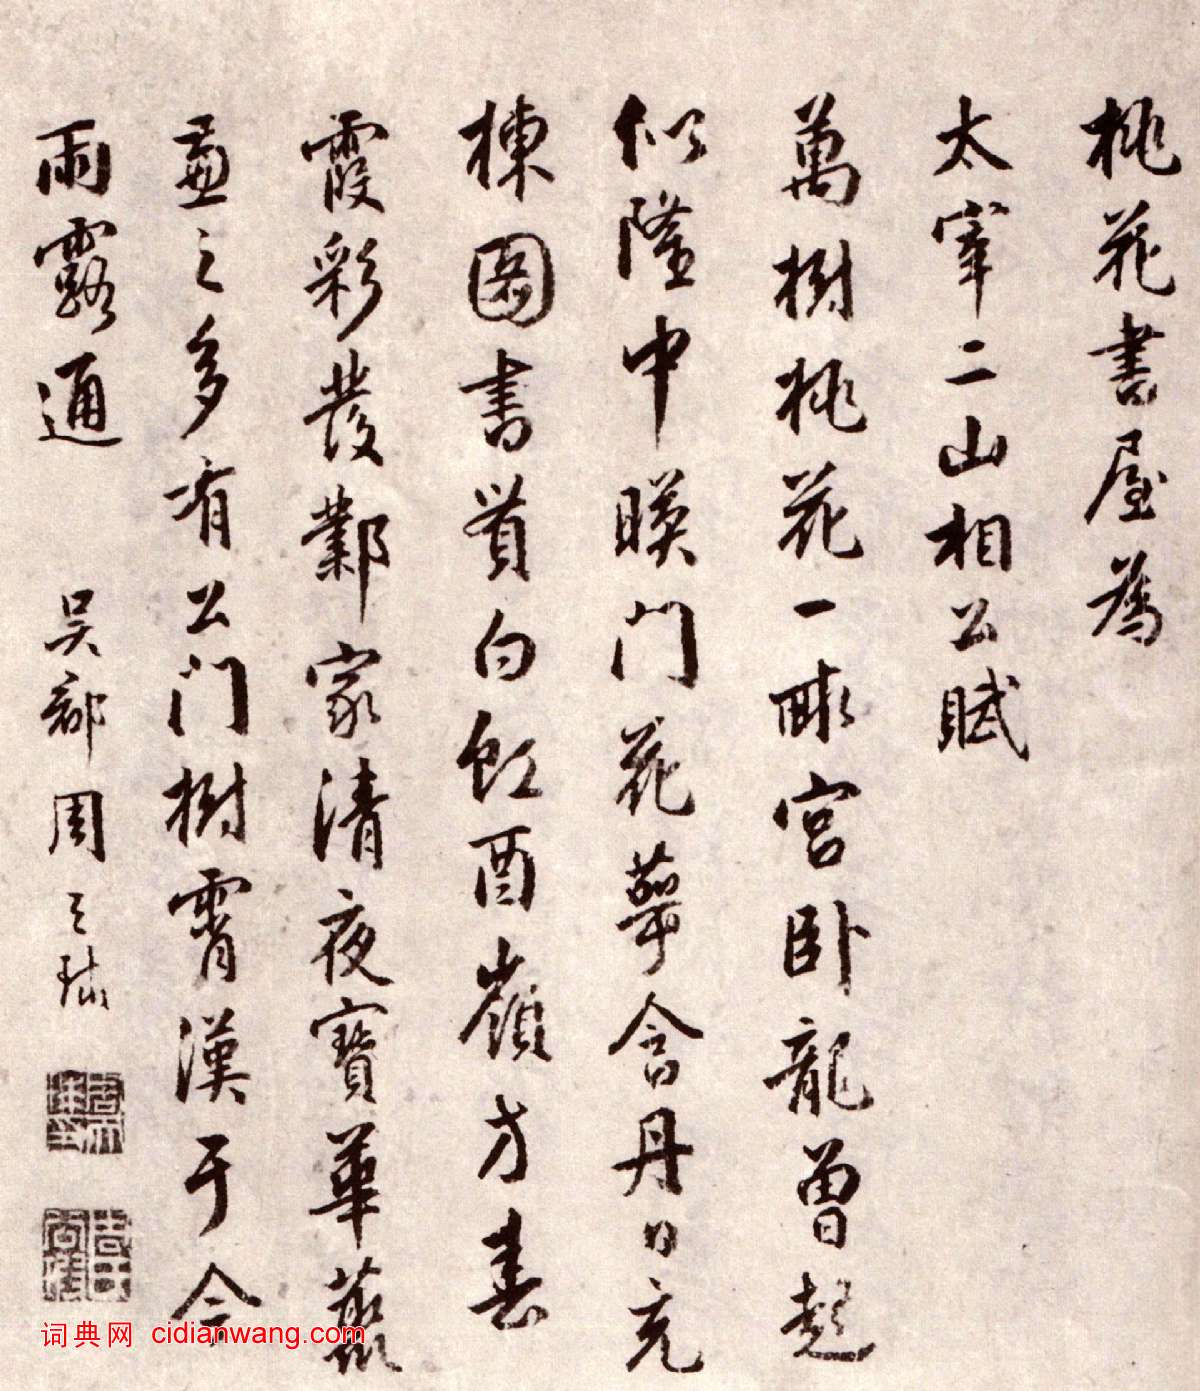 桃花書屋爲
太宰二山相公賦
萬樹桃花一畝宮臥龍曾起
似隆中暎門花萼含丹日充
棟圖書貫白虹酉嶺方春
霞彩發鄴家清夜寶華叢
蓋之多有公門樹霄漢于今
雨露通
吳郡周天球
词典网 cidianwang.com